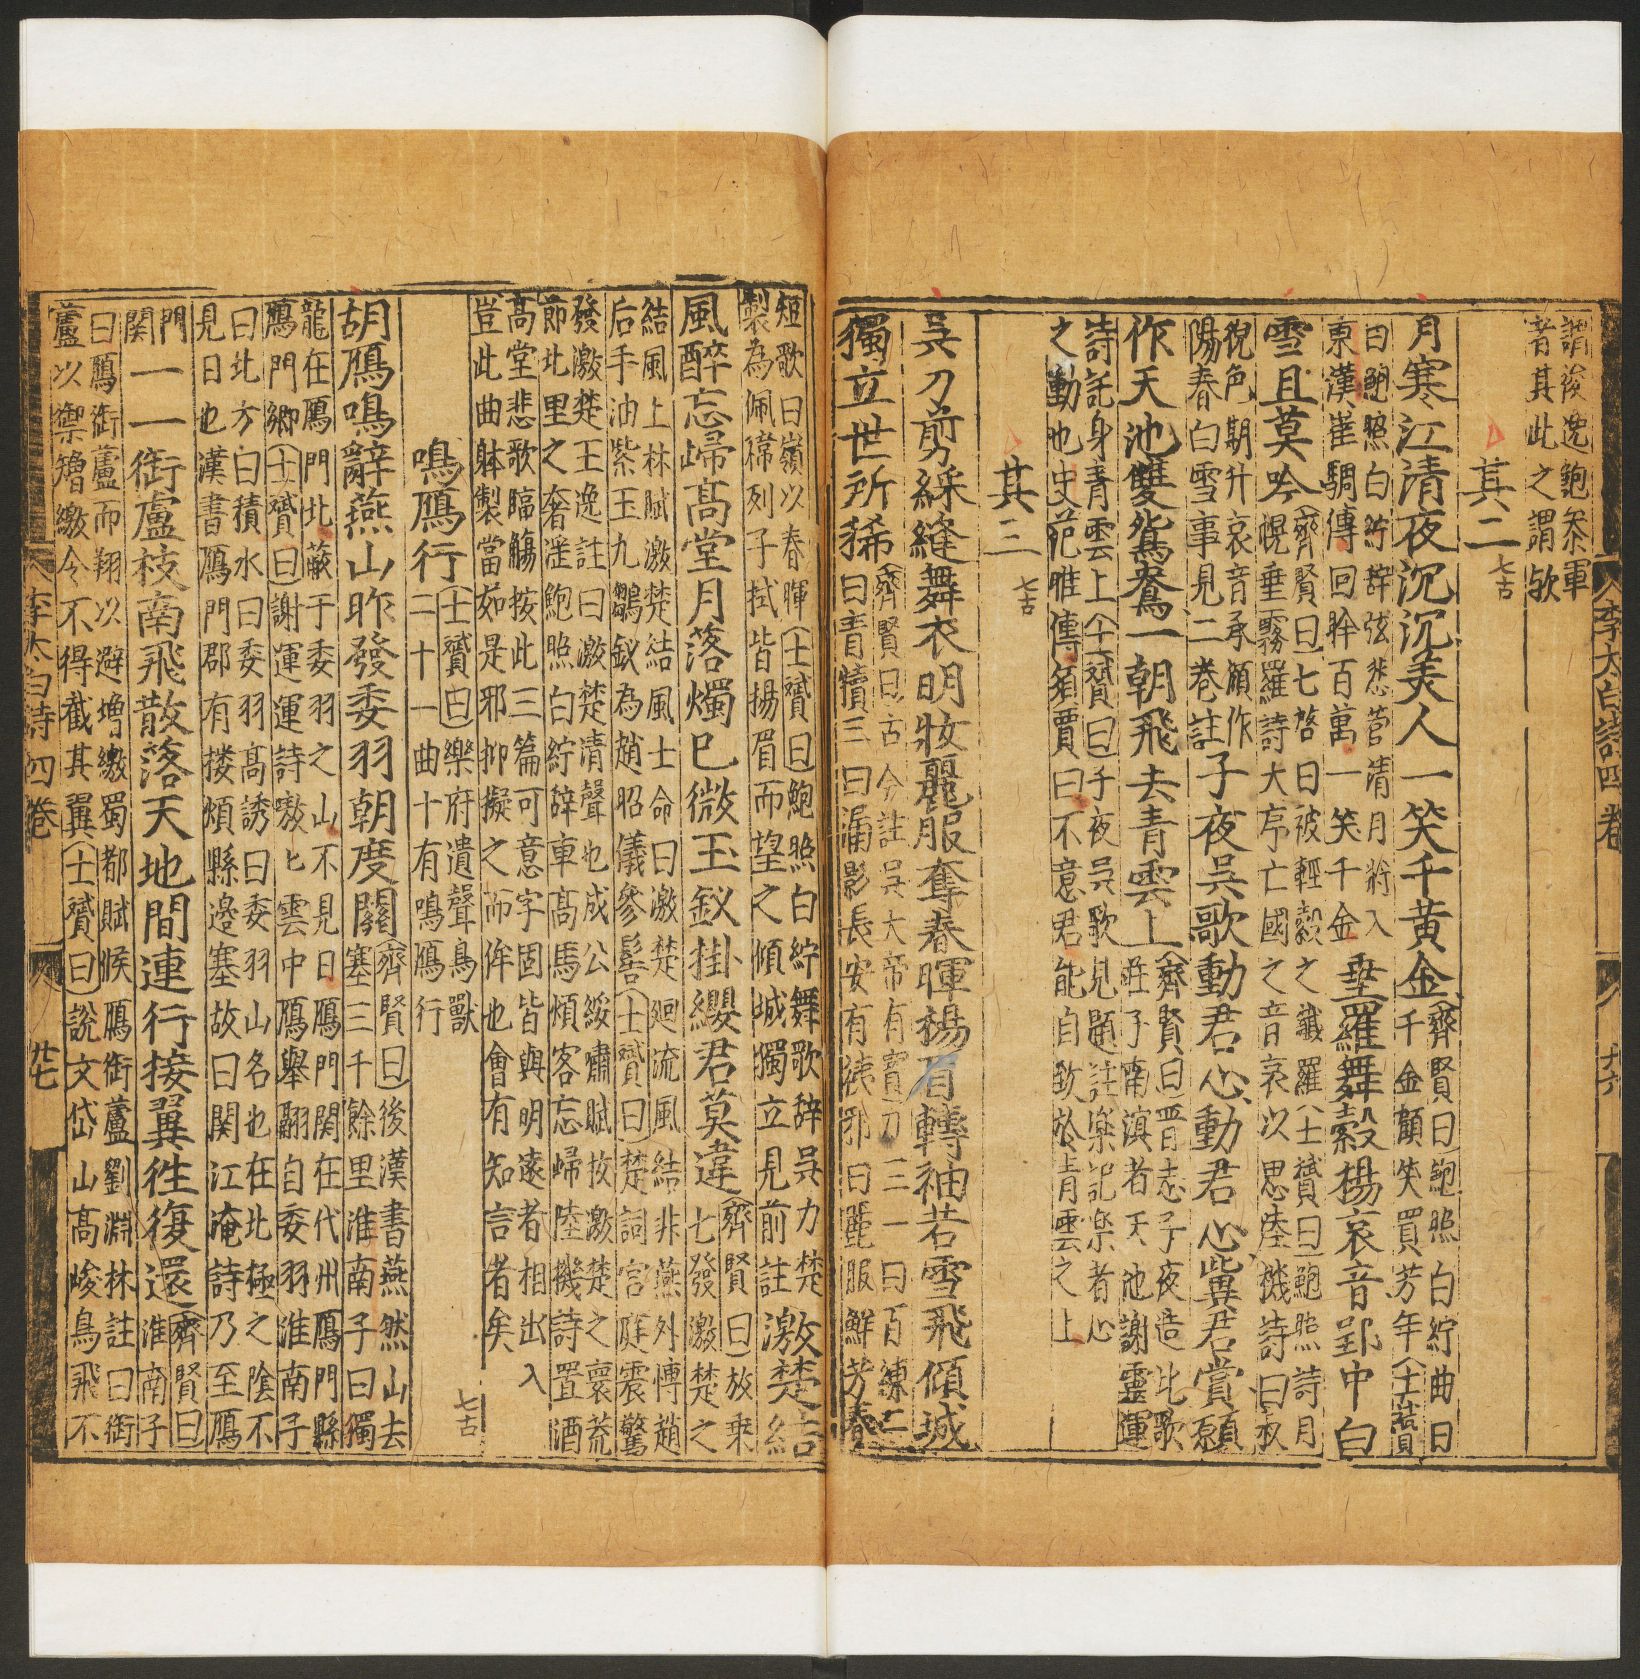 謂後逸鮑叅軍
者其此之謂欤
其二
七古
月寒江清夜沉沉美人一笑千黄金
齊賢曰鮑照白紵曲曰
千金顧笑買芳年士贇
曰鮑照白紵辭弦悲管清月將入
東漢崔駰傳回眸百萬一笑千金
垂羅舞縠楊哀音郢中白
雪且莫吟
齊賢曰七啓曰被輕縠之纖羅士贇曰鮑照詩月
幌垂霧羅詩大序亡國之音哀以思陸機詩曰秋
猊色期升哀音承顏作
陽春白雪事見二卷註
子夜吳歌動君心動君心冀君賞願
作天池雙鴛鴦一朝飛去青雲上
齊賢曰晋志子夜造此歌
莊子南溟者天池謝靈運
詩託身青雲上士贇曰子夜吳歌見題註樂記樂者心
之動也史范雎傳須賈曰不意君能自致於青雲之上
其三
七古
吴刀剪綵縫舞衣明妝麗服奪春暉揚眉轉袖若雪飛傾城
獨立世所稀
齊賢曰古今註吳大帝有寶刀三一曰百練二
曰青犢三曰漏影長安有狹邪曰麗服鮮芳春
李太白詩四卷
廿六
短歌曰嶺以春暉士贇曰鮑照白紵舞歌辞吳刀楚
製為佩褘列子拭皆揚眉而望之傾城獨立見前註
激楚結
風醉忘歸髙堂月落燭巳微玉釵掛纓君莫違
齊賢曰枚乗
七發激楚之
結風上林賦激楚結風士命曰激楚廻流風結非燕外慱趙
后手油紫玉九鶵釵為趙昭儀參髻士贇曰楚詞宮庭震驚
發激楚王逸註曰激楚清聲也成公綏嘯賦按激楚之褱荒
節北里之奢滛鮑照白紵辞車髙馬煩客忘歸陸機詩置酒
髙堂悲歌臨觴按此三篇可意字固皆與明逺者相出入
豈此曲躰製當茹是邪抑擬之而侔也會有知言者矣
鳴鴈行
士贇曰樂府遺聲鳥獸
二十一曲十有鳴鴈行
七古
胡鴈鳴辭燕山昨發委羽朝度關
齊賢曰後漢書燕然山去
塞三千餘里淮南子曰獨
龍在鴈門北蔽于委羽之山不見日鴈門関在代州鴈門縣
鴈門鄉士贇曰謝運運詩嗷匕雲中鴈舉翮自委羽淮南子
曰北方曰積水曰委羽髙誘曰委羽山名也在北極之隂不
見日也漢書鴈門郡有摟煩縣邉塞故曰関江淹詩乃至鴈
門
関
一一銜盧枝南飛散落天地間連行接翼往復還
齊賢曰
淮南子
曰鴈銜蘆而翔以避増繳蜀都賦候鴈銜蘆劉淵林註曰銜
蘆以禦矰繳令不得截其翼士贇曰説文岱山髙峻鳥飛不
李太白詩四卷
廿七